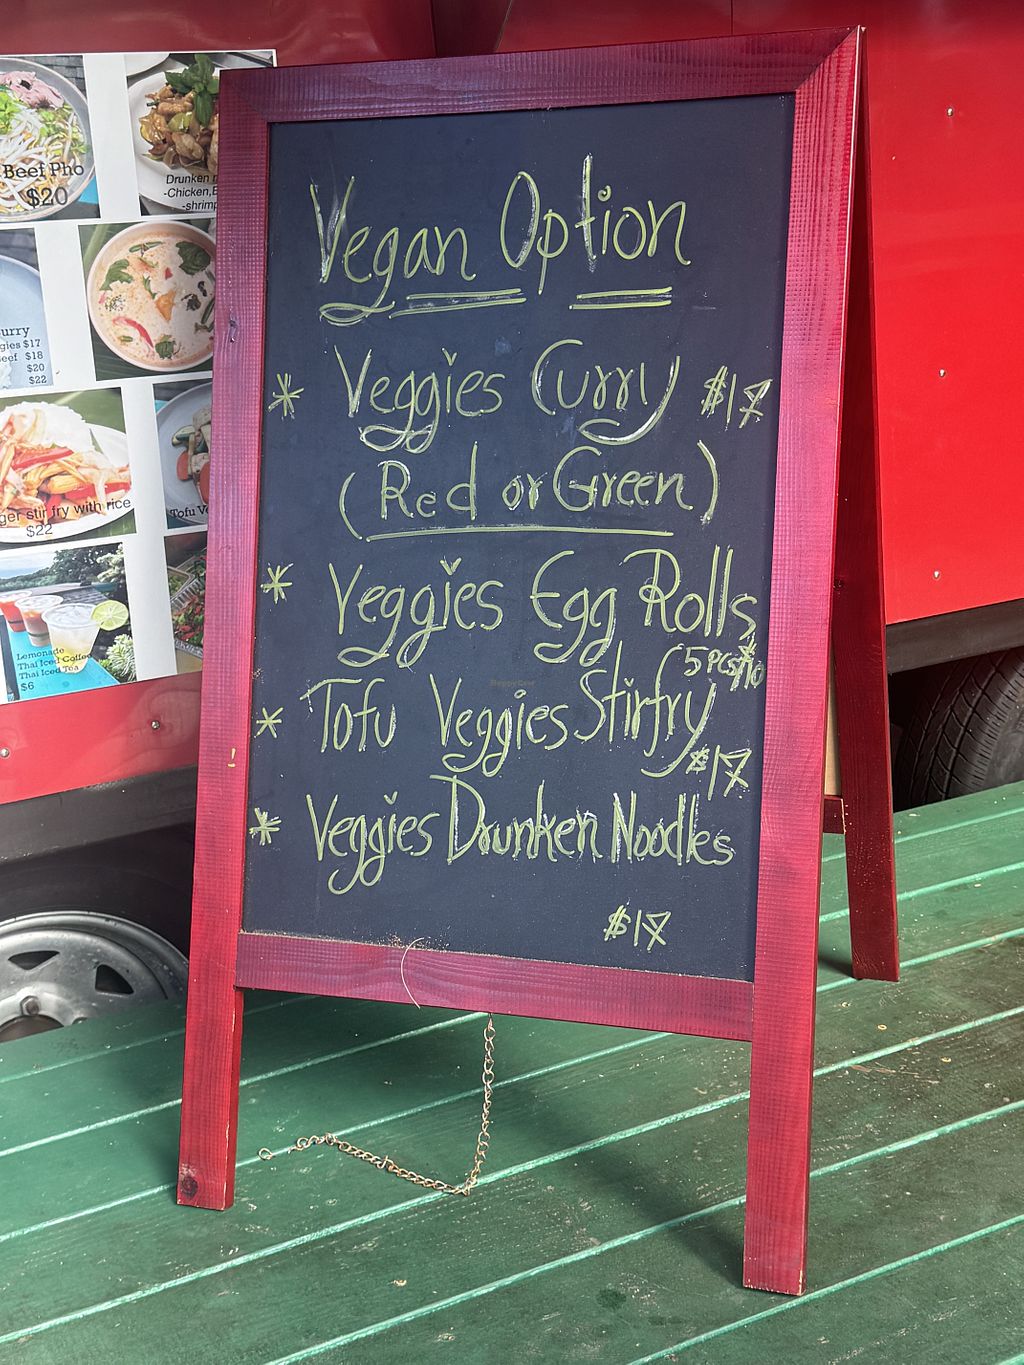 Beef Pho
$20
Drunken
-Chicken,
-shrimp
urry
gies $17
eef $18
$20
$22
ger stir fry with rice
$22
Tofu Ve
Lemonade
Thai Iced Coffee
Thai Iced Tea
$6
Vegan Option
* Veggies Curry $17
(Red or Green)
* Veggies Egg Rolls
5 pcs $10
* Tofu Veggies Stirfry
$17
* Veggies Drunken Noodles
$17